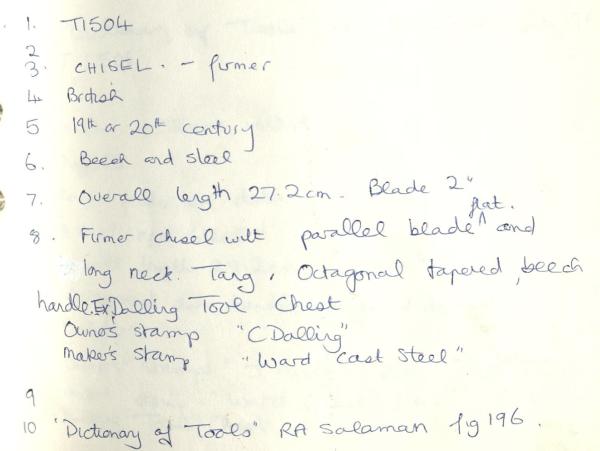 1. T1504
2
3. CHISEL. - firmer
4 British
5 19th or 20th century
6. Beech and steel
7. Overall length 27.2cm. Blade 2"
8. Firmer chisel with parallel blade flat. and
long neck. Tang, Octagonal tapered, beech
handle. Ex Dalling Tool Chest
Owner's stamp "C Dalling"
maker's stamp "Ward Cast Steel"
9
10 'Dictionary of Tools" RA Salaman fg 196.